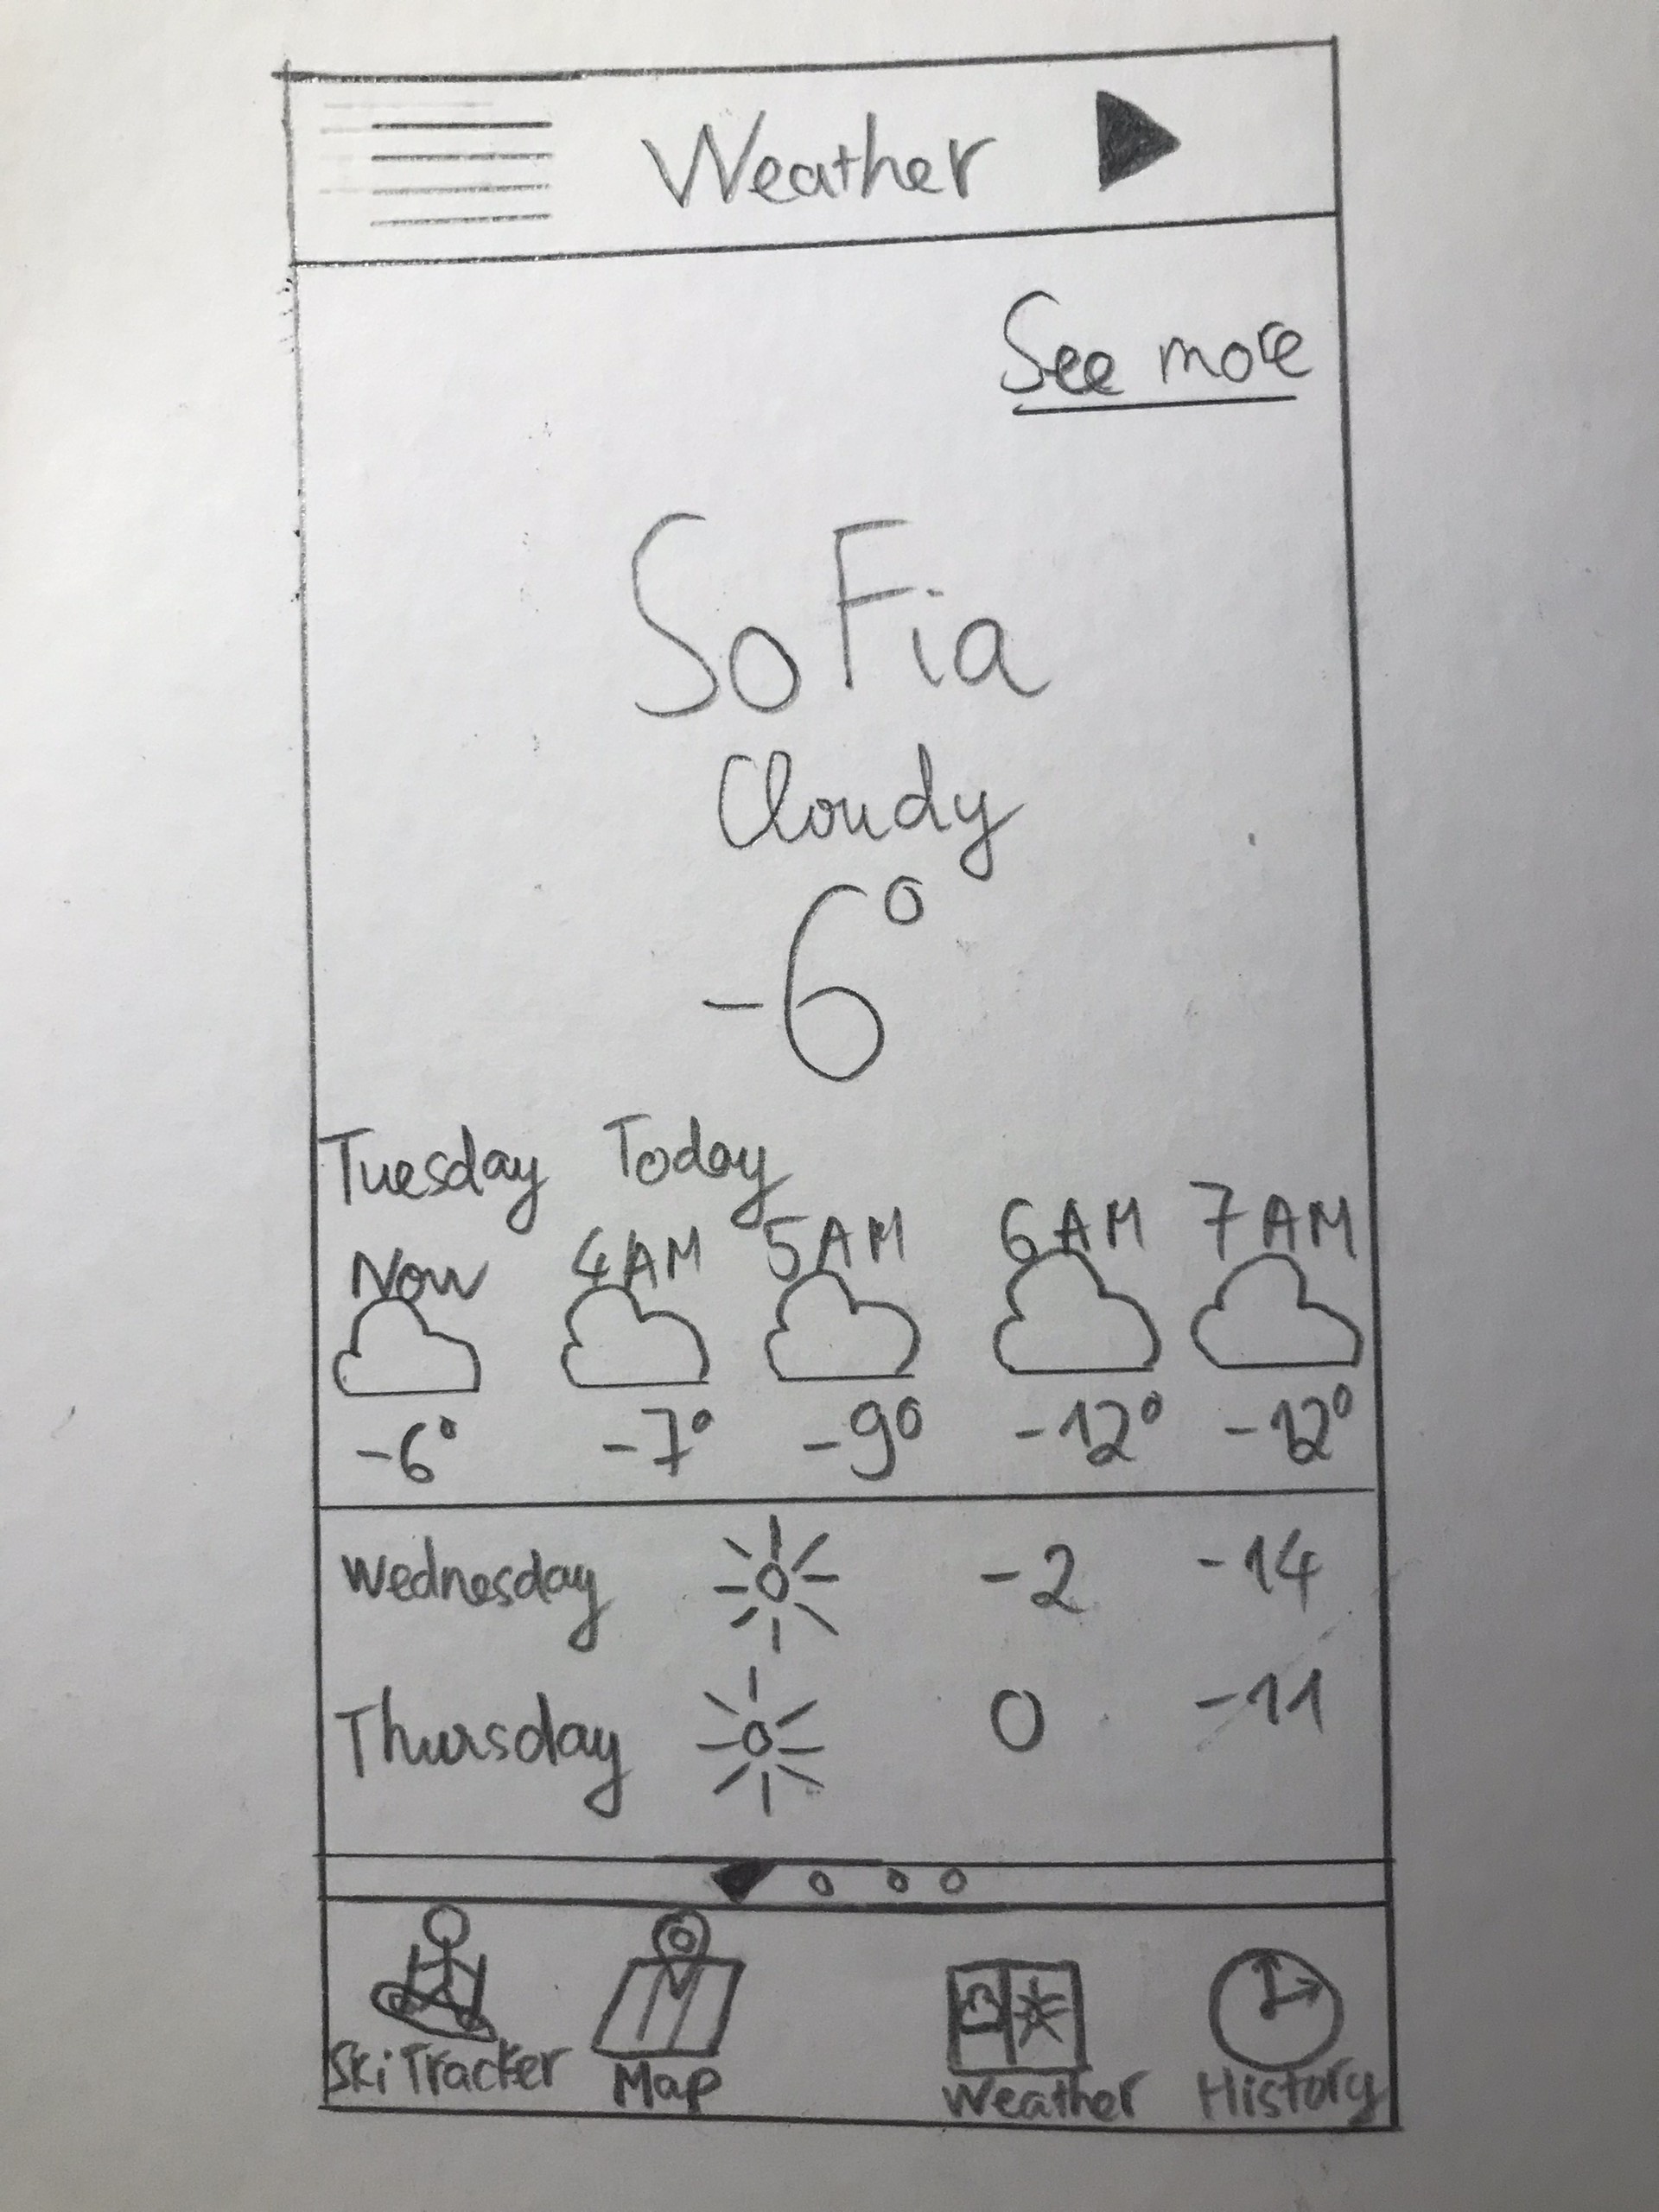 Weather
See more
SoFia
Cloudy
-6°
Tuesday Today
Now 4AM 5AM 6AM 7AM
-6° -7° -9° -12° -12°
Wednesday -2 -14
Thursday 0 -11
Ski Tracker Map Weather History